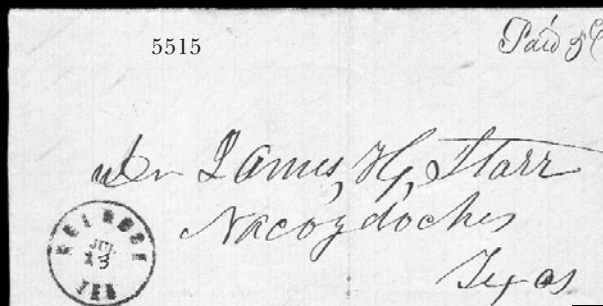 5515
Paid 5C
James, H, Starr
Nacogdoches
Texas
MELROSE
JUL
13
TEX